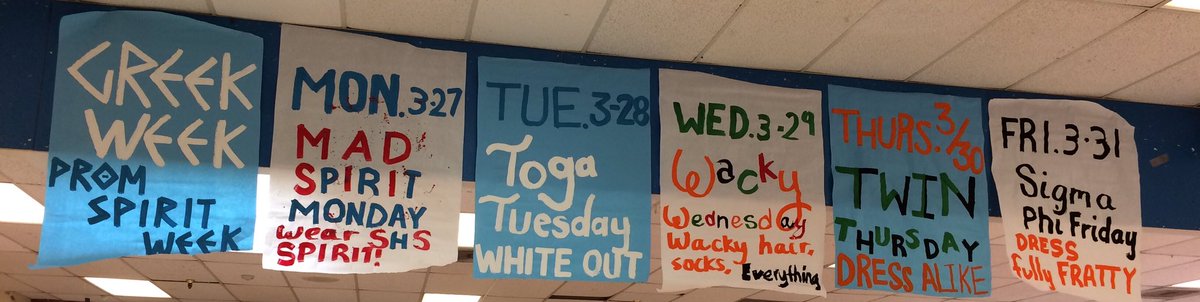 GREEK
WEEK
PROM
SPIRIT
WEEK
MON. 3-27
MAD
SPIRIT
MONDAY
wear SHS
SPIRIT!
TUE. 3-28
Toga
Tuesday
WHITE OUT
WED. 3-29
Wacky
Wednesday
Wacky hair,
socks, Everything
THURS. 3/30
TWIN
THURSDAY
DRESS ALIKE
FRI. 3-31
Sigma
Phi Friday
DRESS
fully FRATTY